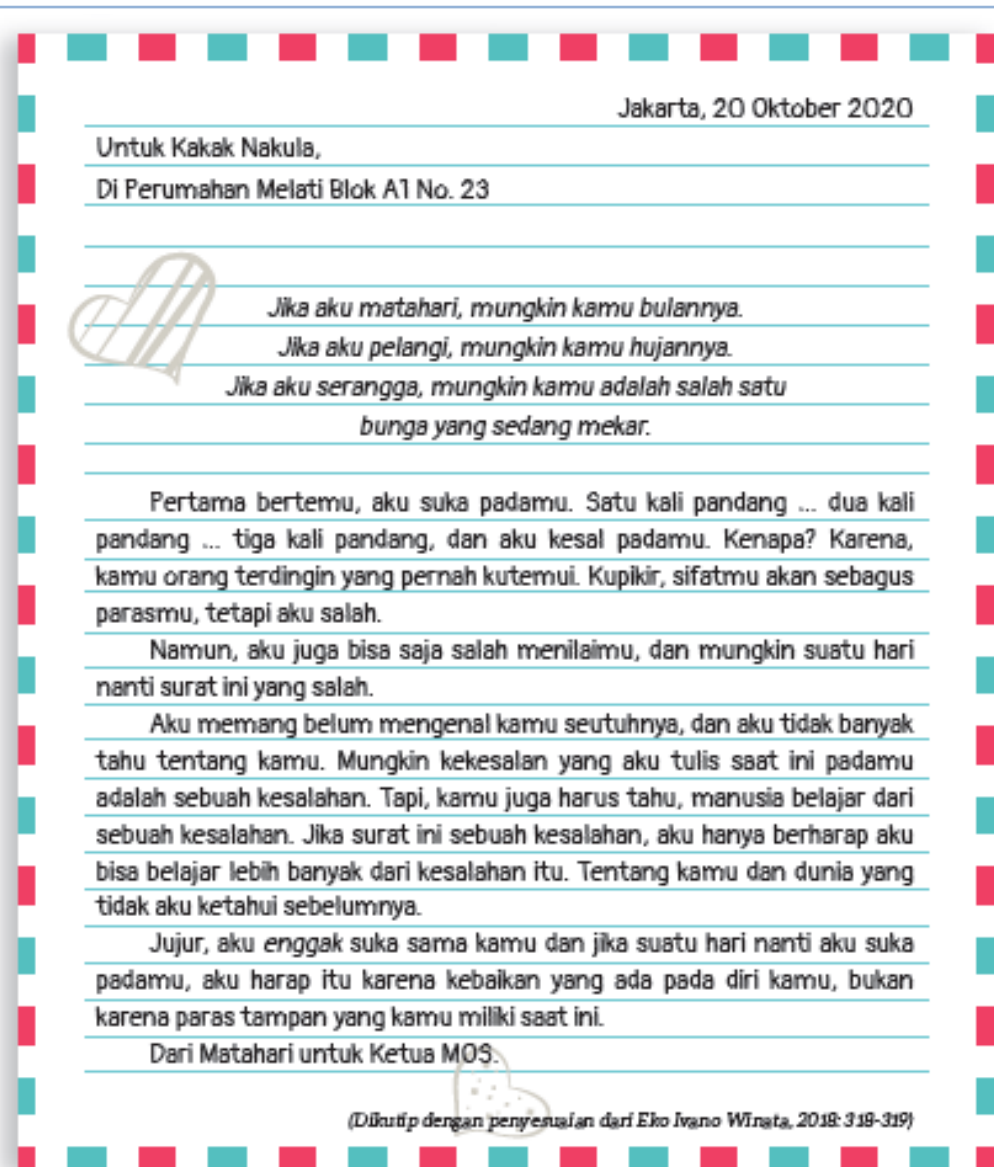 Jakarta, 20 Oktober 2020
Untuk Kakak Nakula,
Di Perumahan Melati Blok A1 No. 23
Jika aku matahari, mungkin kamu bulannya.
Jika aku pelangi, mungkin kamu hujannya.
Jika aku serangga, mungkin kamu adalah salah satu
bunga yang sedang mekar.
Pertama bertemu, aku suka padamu. Satu kali pandang ... dua kali
pandang ... tiga kali pandang, dan aku kesal padamu. Kenapa? Karena,
kamu orang terdingin yang pernah kutemui. Kupikir, sifatmu akan sebagus
parasmu, tetapi aku salah.
Namun, aku juga bisa saja salah menilaimu, dan mungkin suatu hari
nanti surat ini yang salah.
Aku memang belum mengenal kamu seutuhnya, dan aku tidak banyak
tahu tentang kamu. Mungkin kekesalan yang aku tulis saat ini padamu
adalah sebuah kesalahan. Tapi, kamu juga harus tahu, manusia belajar dari
sebuah kesalahan. Jika surat ini sebuah kesalahan, aku hanya berharap aku
bisa belajar lebih banyak dari kesalahan itu. Tentang kamu dan dunia yang
tidak aku ketahui sebelumnya.
Jujur, aku enggak suka sama kamu dan jika suatu hari nanti aku suka
padamu, aku harap itu karena kebaikan yang ada pada diri kamu, bukan
karena paras tampan yang kamu miliki saat ini.
Dari Matahari untuk Ketua MOS.
(Dikutip dengan penyesuaian dari Eko Ivano Winata, 2018: 318-319)